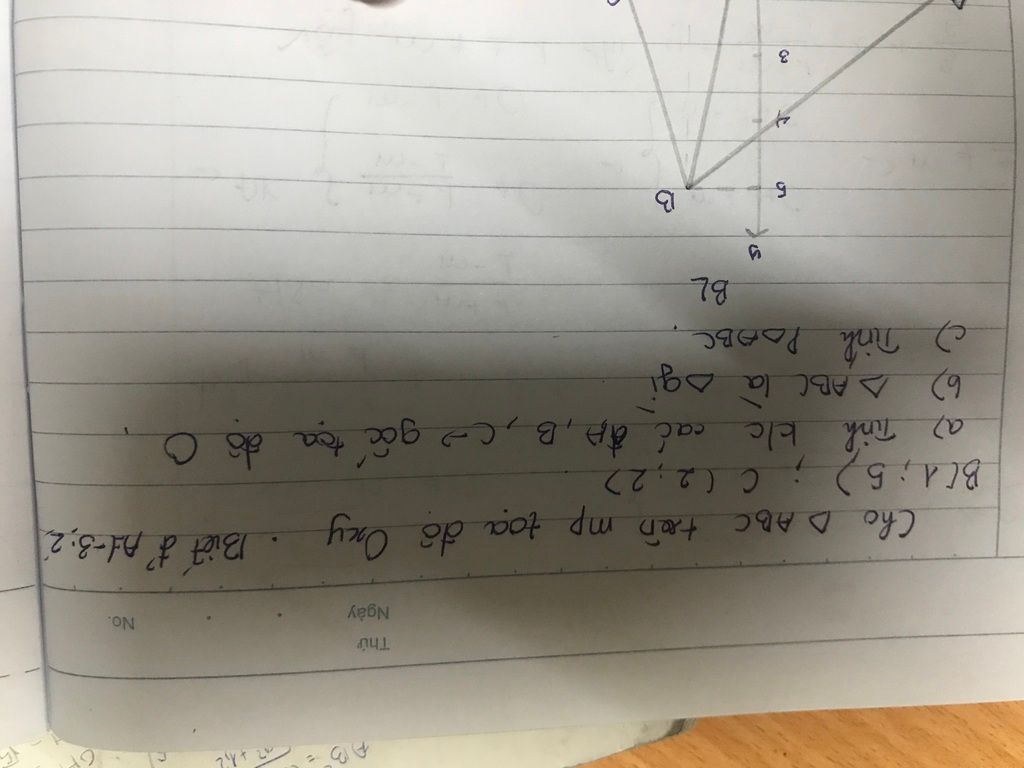 Thứ
Ngày
No.
Cho Δ ABC trên mp tọa độ Oxy. Biết đ' A(-3;2)
B(1;5); C(2;2)
a) Tính k/c các đ' A, B, C → gốc tọa độ O
b) Δ ABC là Δ gì
c) Tính PΔABC
BL
y
B
5
3